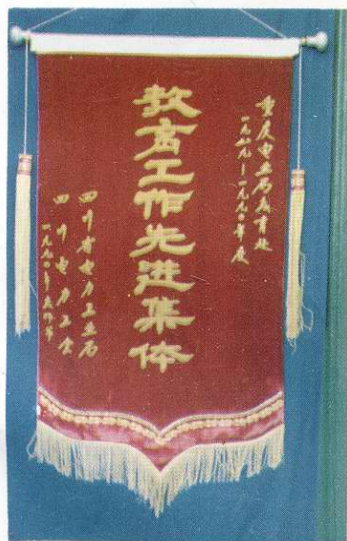 重庆电业局教育处
一九八九—一九九〇年度
教育工作先进集体
四川省电力工业局
四川电力工会
一九九〇年教师节